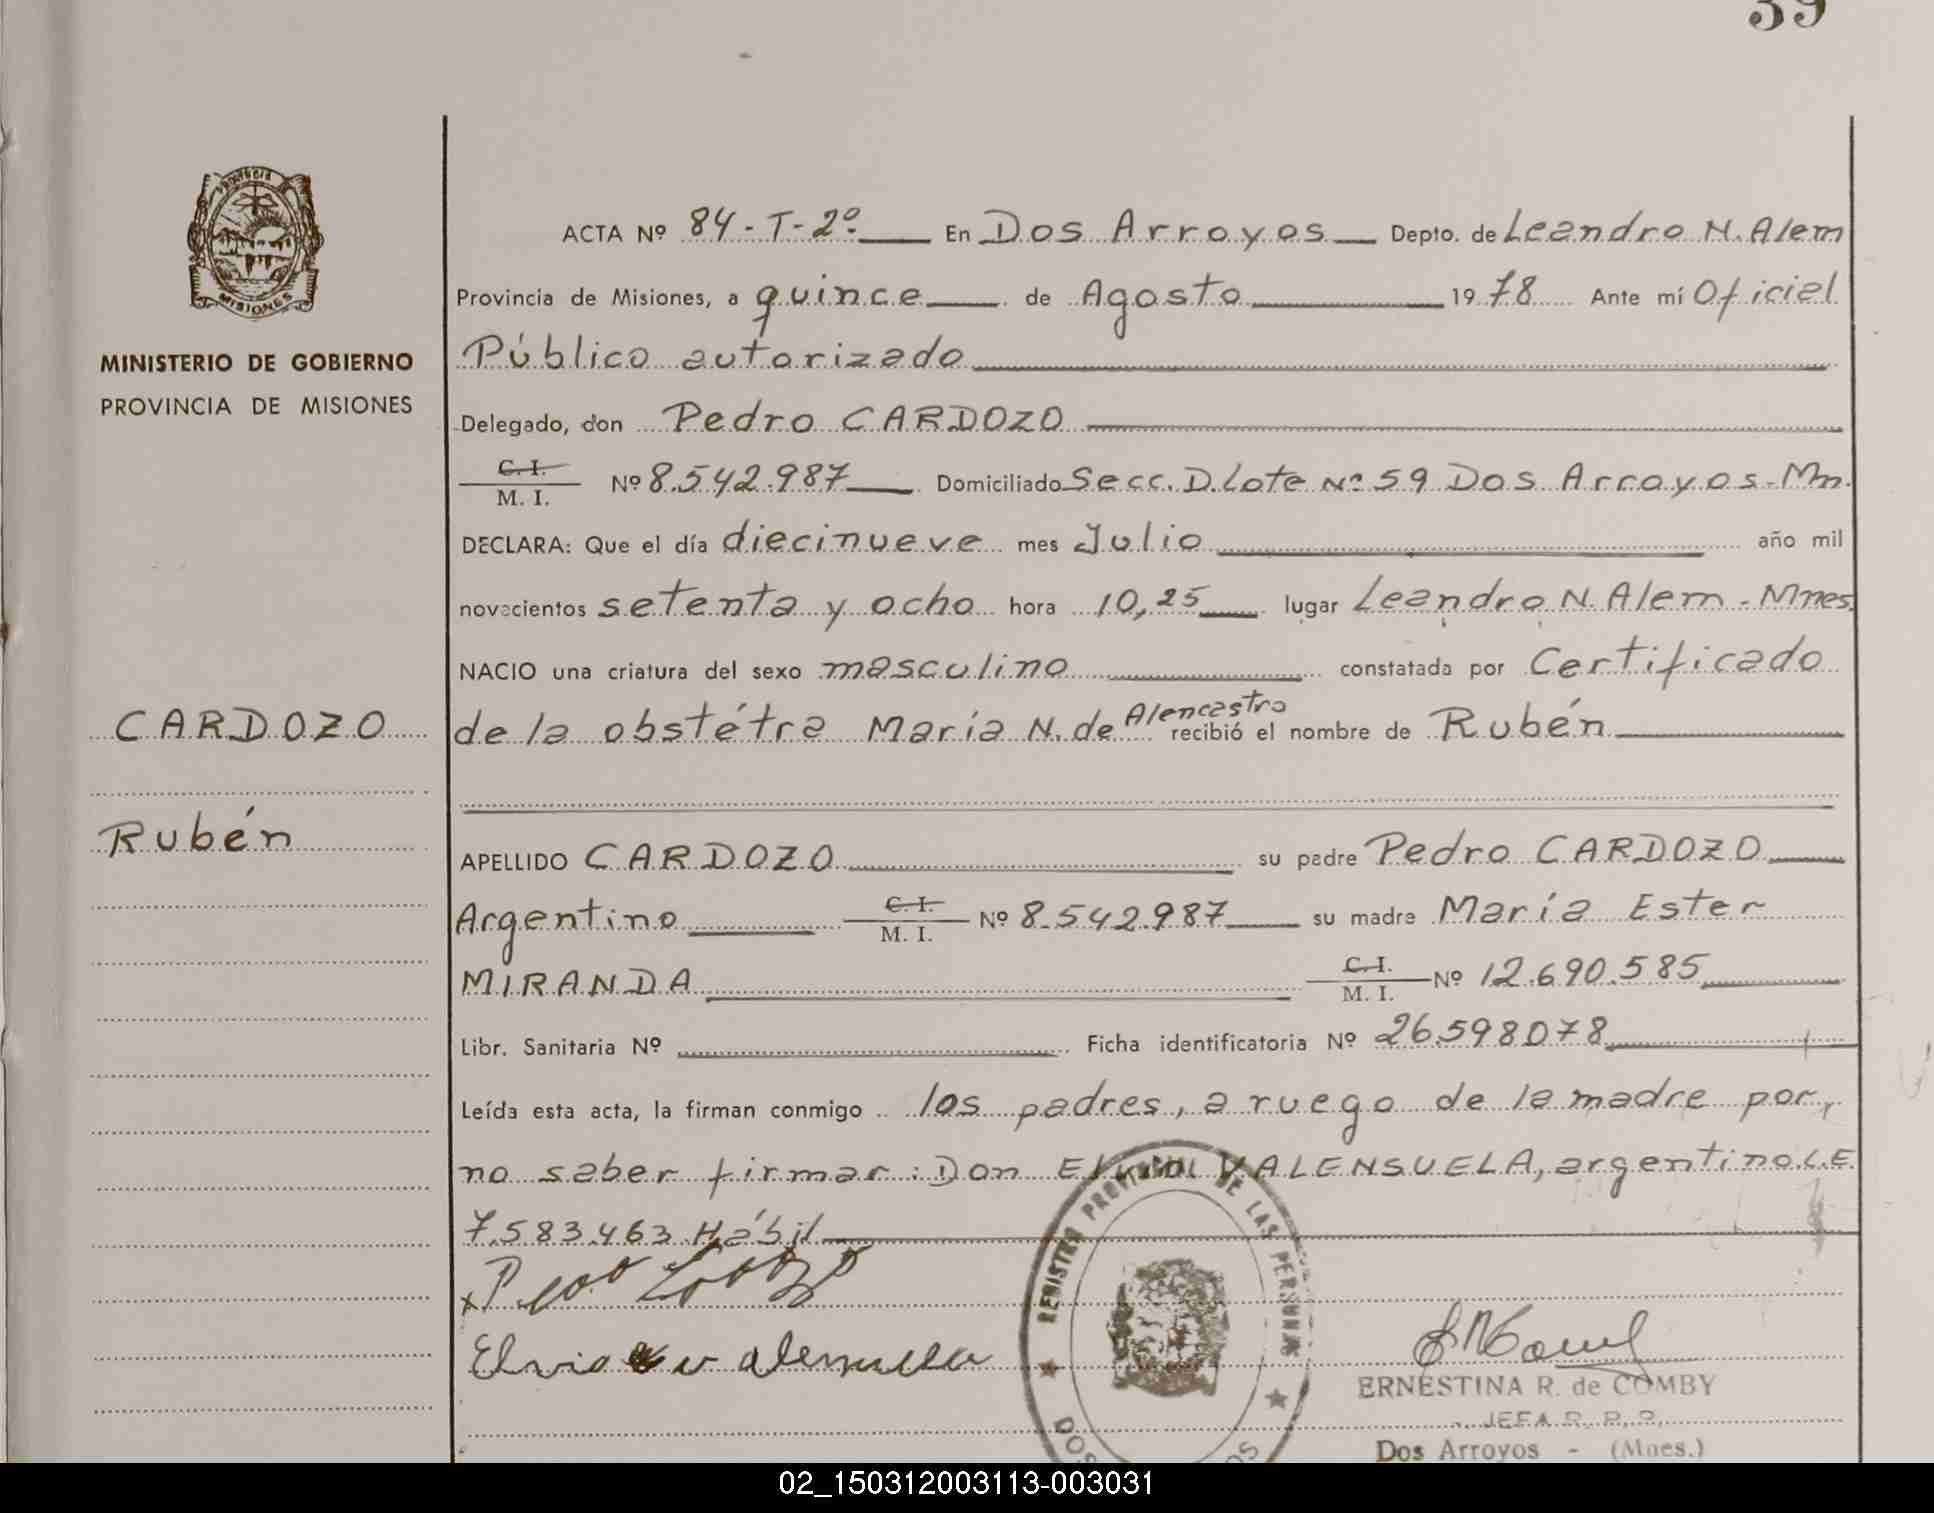 39
ACTA Nº 84-T-2º En Dos Arroyos Depto. de Leandro N. Alem
Provincia de Misiones, a quince de Agosto 1978 Ante mí Oficial
Público autorizado
MINISTERIO DE GOBIERNO
PROVINCIA DE MISIONES
Delegado, don Pedro CARDOZO
C. I.
M. I. Nº 8.542.987 Domiciliado Secc. D. Lote Nº 59 Dos Arroyos-Mn.
DECLARA: Que el día diecinueve mes Julio año mil
novecientos setenta y ocho hora 10,25 lugar Leandro N. Alem-Mnes.
NACIO una criatura del sexo masculino constatada por Certificado
CARDOZO
de la obstétra María N. de Alencastro recibió el nombre de Rubén
Rubén
APELLIDO CARDOZO su padre Pedro CARDOZO
Argentino C. I. M. I. Nº 8.542.987 su madre María Ester
MIRANDA C. I. M. I. Nº 12.690.585
Libr. Sanitaria Nº Ficha identificatoria Nº 26.598078
Leída esta acta, la firman conmigo los padres, a ruego de la madre por,
no saber firmar: Don Elvio VALENSUELA, argentino L.E.
7.583.463 Hábil
REGISTRO PROVINCIAL DE LAS PERSONAS
MISIONES
Elvio valensuela
ERNESTINA R. de COMBY
JEFA R. P. P.
Dos Arroyos - (Mnes.)
02_150312003113-003031